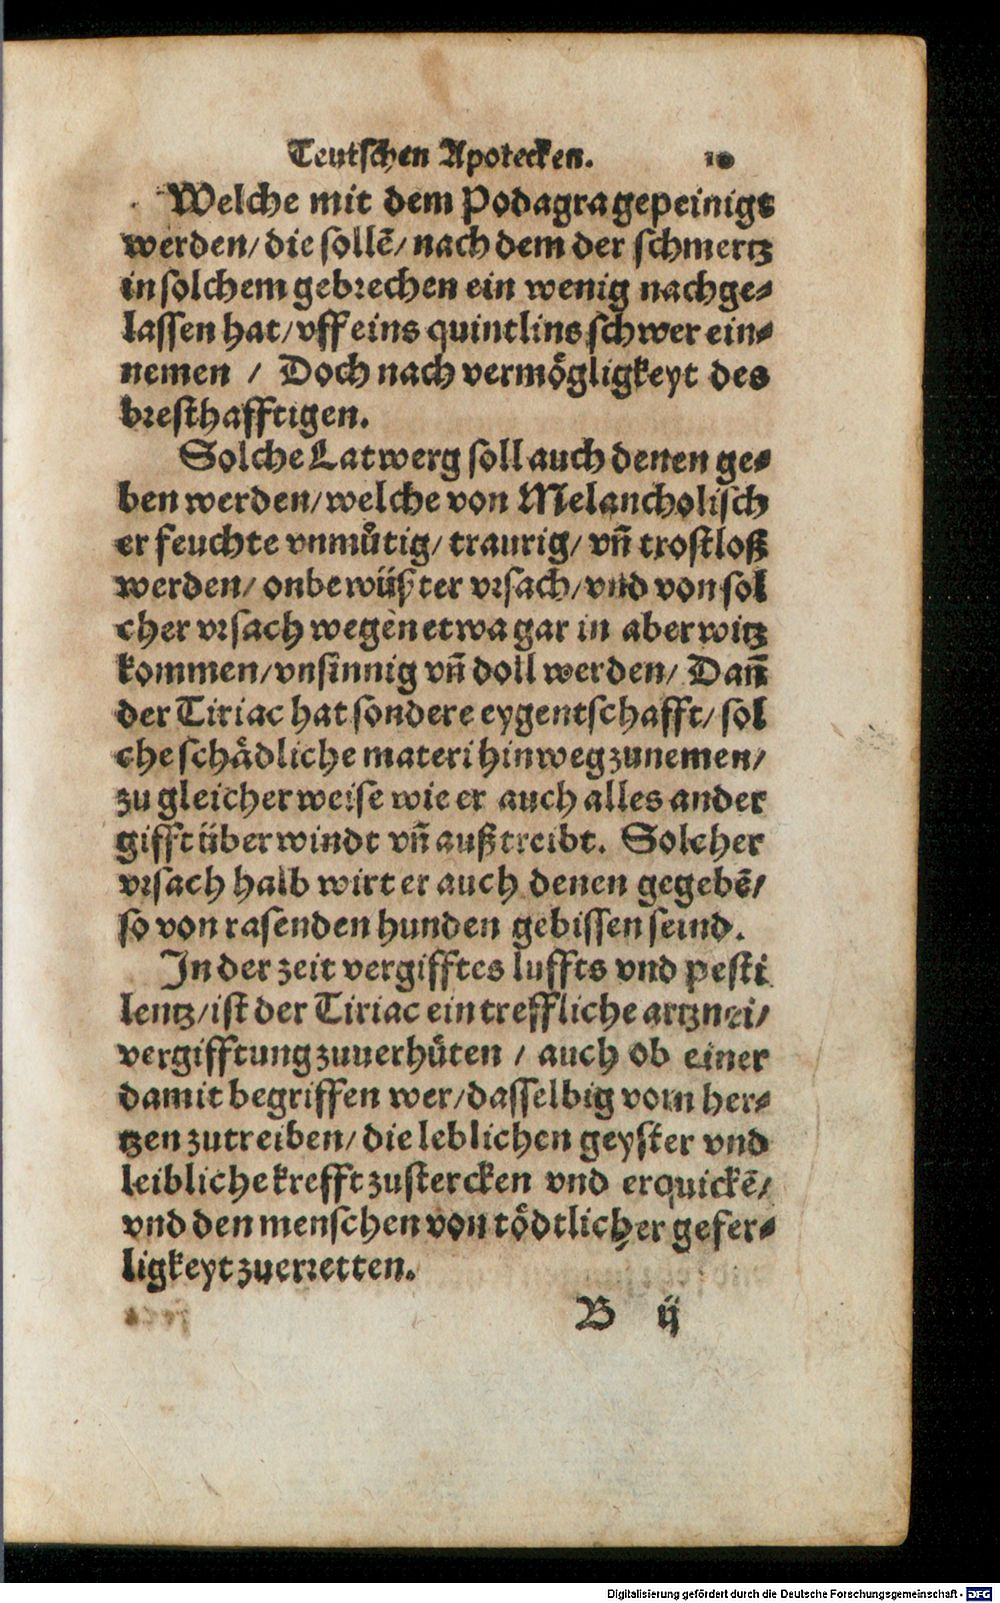 Teutschen Apotecken. 10
Welche mit dem Podagra gepeinigt
werden/ die sollẽ/ nach dem der schmertz
in solchem gebrechen ein wenig nachge⸗
lassen hat/ vff eins quintlins schwer ein⸗
nemen / Doch nach vermögligkeyt des
bresthafftigen.
Solche Latwerg soll auch denen ge⸗
ben werden/ welche von Melancholisch
er feuchte vnmůtig/ traurig/ vñ trostloß
werden/ onbewüßter vrsach/ vnd von sol
cher vrsach wegen etwa gar in aberwitz
kommen/ vnsinnig vñ doll werden/ Dañ
der Tiriac hat sondere eygentschafft/ sol
che schådliche materi hinweg zunemen/
zu gleicher weise wie er auch alles ander
gifft überwindt vñ außtreibt. Solcher
vrsach halb wirt er auch denen gegebẽ/
so von rasenden hunden gebissen seind.
In der zeit vergifftes luffts vnd pesti
lentz/ ist der Tiriac ein treffliche artznei/
vergifftung zuuerhüten / auch ob einer
damit begriffen wer/ dasselbig vom her⸗
tzen zutreiben/ die leblichen geyster vnd
leibliche krefft zustercken vnd erquickẽ/
vnd den menschen von tödtlicher gefer⸗
ligkeyt zuerretten.
B ij
Digitalisierung gefördert durch die Deutsche Forschungsgemeinschaft - DFG